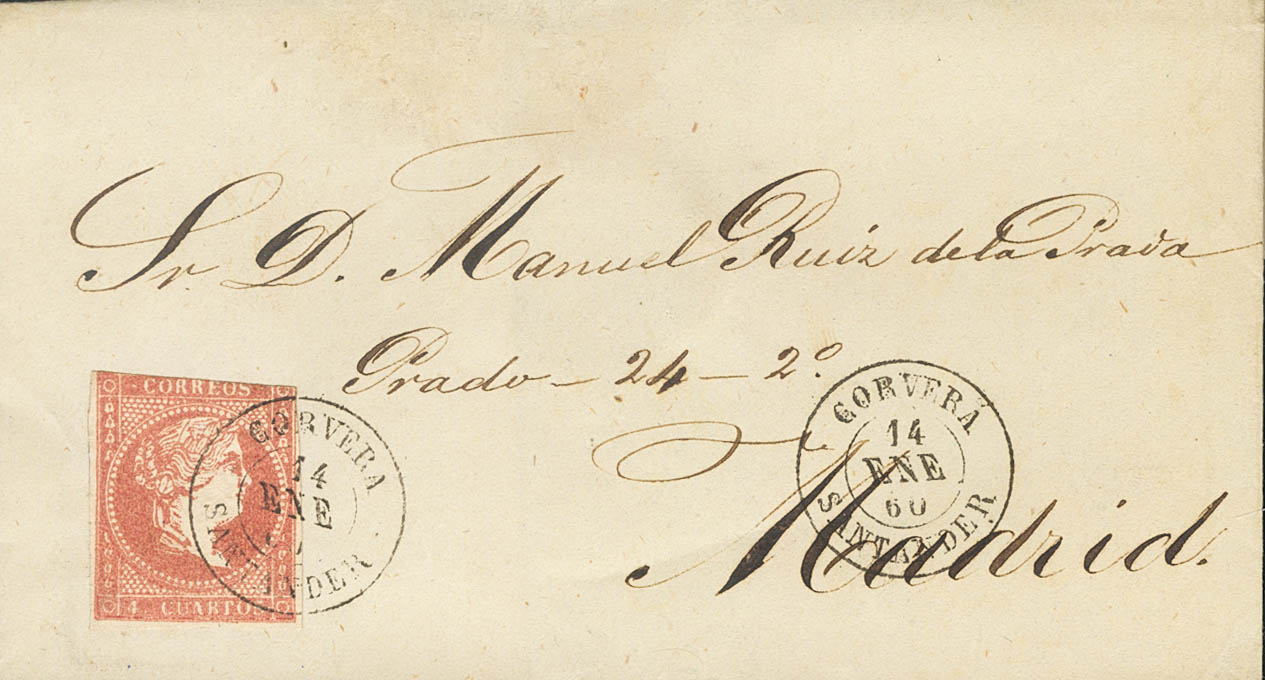 Sr. D. Manuel Ruiz de la Prada
Prado - 24 - 2º
Madrid.
CORREOS
4 CUARTOS
CORVERA
14
ENE
SANTANDER
CORVERA
14
ENE
60
SANTANDER